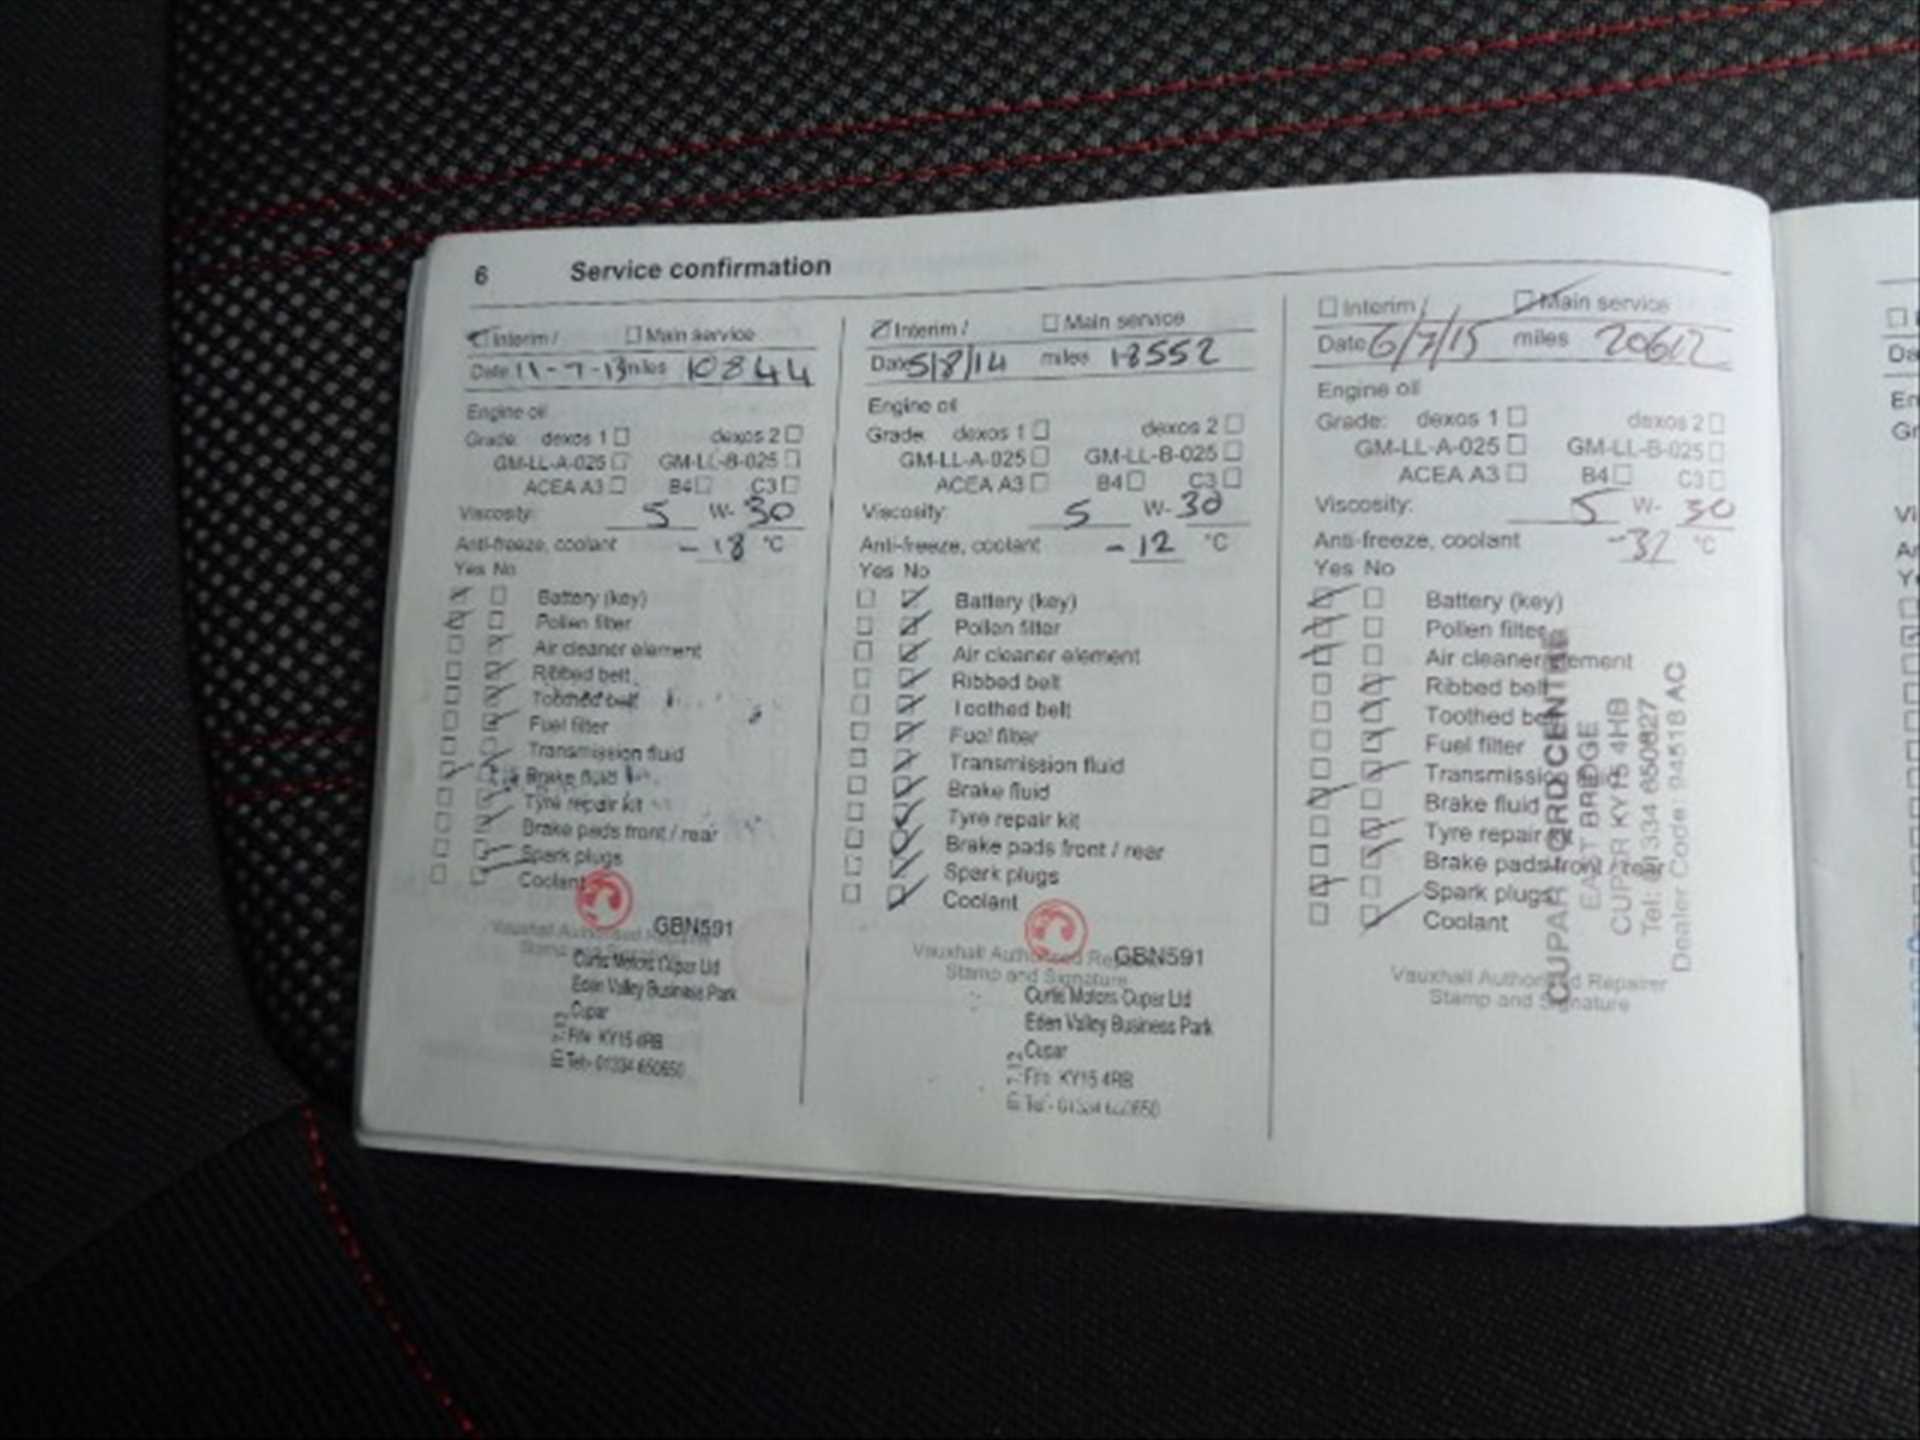 6 Service confirmation
Interim / Main service
Date 11-7-13 miles 10844
Engine oil
Grade: dexos 1 dexos 2
GM-LL-A-025 GM-LL-B-025
ACEA A3 B4 C3
Viscosity: 5 W- 30
Anti-freeze, coolant -18 °C
Yes No
Battery (key)
Pollen filter
Air cleaner element
Ribbed belt
Toothed belt
Fuel filter
Transmission fluid
Brake fluid
Tyre repair kit
Brake pads front / rear
Spark plugs
Coolant
GBN591
Vauxhall Authorised Repairer
Stamp and Signature
Curtis Motors Cupar Ltd
Eden Valley Business Park
Cupar
Fife KY15 4RB
Tel:- 01334 650650
Interim / Main service
Date 5/8/14 miles 18552
Engine oil
Grade: dexos 1 dexos 2
GM-LL-A-025 GM-LL-B-025
ACEA A3 B4 C3
Viscosity: 5 W- 30
Anti-freeze, coolant -12 °C
Yes No
Battery (key)
Pollen filter
Air cleaner element
Ribbed belt
Toothed belt
Fuel filter
Transmission fluid
Brake fluid
Tyre repair kit
Brake pads front / rear
Spark plugs
Coolant
GBN591
Vauxhall Authorised Repairer
Stamp and Signature
Curtis Motors Cupar Ltd
Eden Valley Business Park
Cupar
Fife KY15 4RB
Interim / Main service
Date 6/7/15 miles 20612
Engine oil
Grade: dexos 1 dexos 2
GM-LL-A-025 GM-LL-B-025
ACEA A3 B4 C3
Viscosity: 5 W- 30
Anti-freeze, coolant -32 °C
Yes No
Battery (key)
Pollen filter
Air cleaner element
Ribbed belt
Toothed belt
Fuel filter
Transmission fluid
Brake fluid
Tyre repair kit
Brake pads front / rear
Spark plugs
Coolant
Vauxhall Authorised Repairer
Stamp and Signature
CUPAR FORD CENTRE
EAST BRIDGE
CUPAR KY15 4HB
Tel: 01334 650827
Dealer Code: 94518 AC